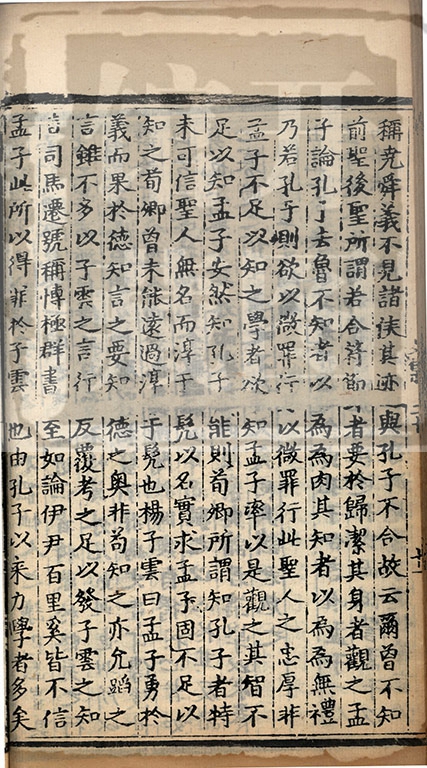 稱堯舜義不見諸侯其迹與孔子不合故云爾曾不知
前聖後聖所謂若合符節者要於歸潔其身者觀之孟
子論孔子去魯不知者以為為肉其知者以為為無禮
乃若孔子則欲以微罪行以微罪行此聖人之忠厚非
孟子不足以知之學者欲知孟子率以是觀之其智不
足以知孟子安然知孔子能則荀卿所謂知孔子者特
未可信聖人無名而淳于髡以名實求孟子固不足以
知之荀卿曾未能遠過淳于髡也楊子雲曰孟子勇於
義而果於德知言之要知德之奧非苟知之亦允蹈之
言雖不多以子雲之言行反覆考之足以發子雲之知
言司馬遷號稱博極群書至如論伊尹百里奚皆不信
孟子此所以得罪於子雲也由孔子以來力學者多矣